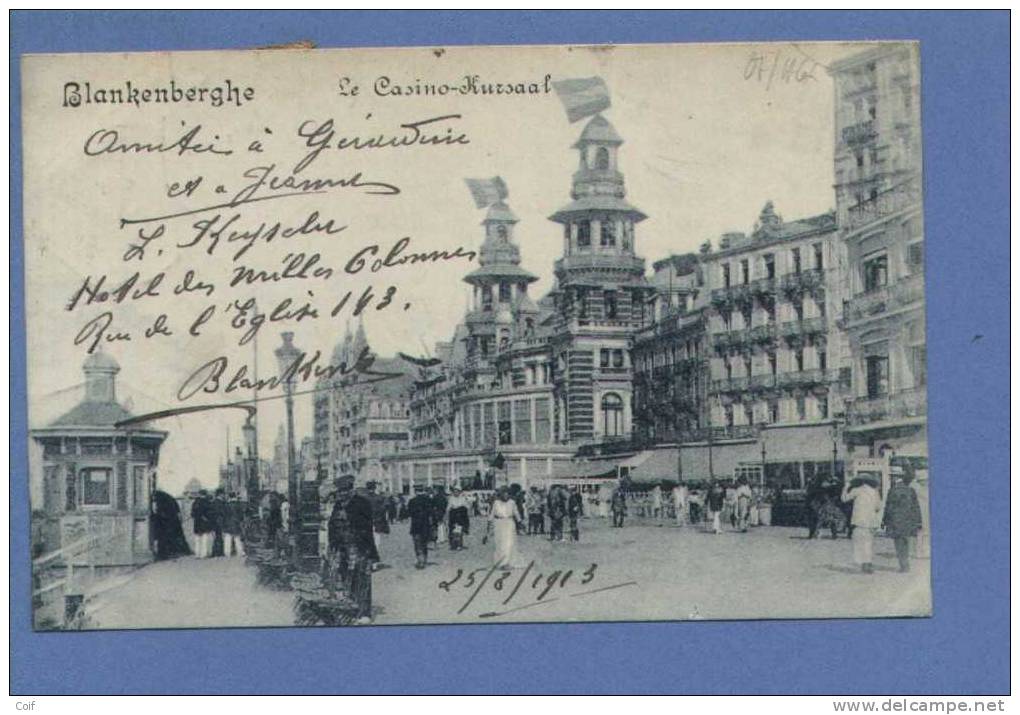 Blankenberghe
Le Casino-Kursaal
Amitié à Gérardine
et a Jeanne
L. Keyseler
Hotel des milles Colonnes
Rue de l'Eglise 143.
Blank
25/8/1913
Coif
www.delcampe.net